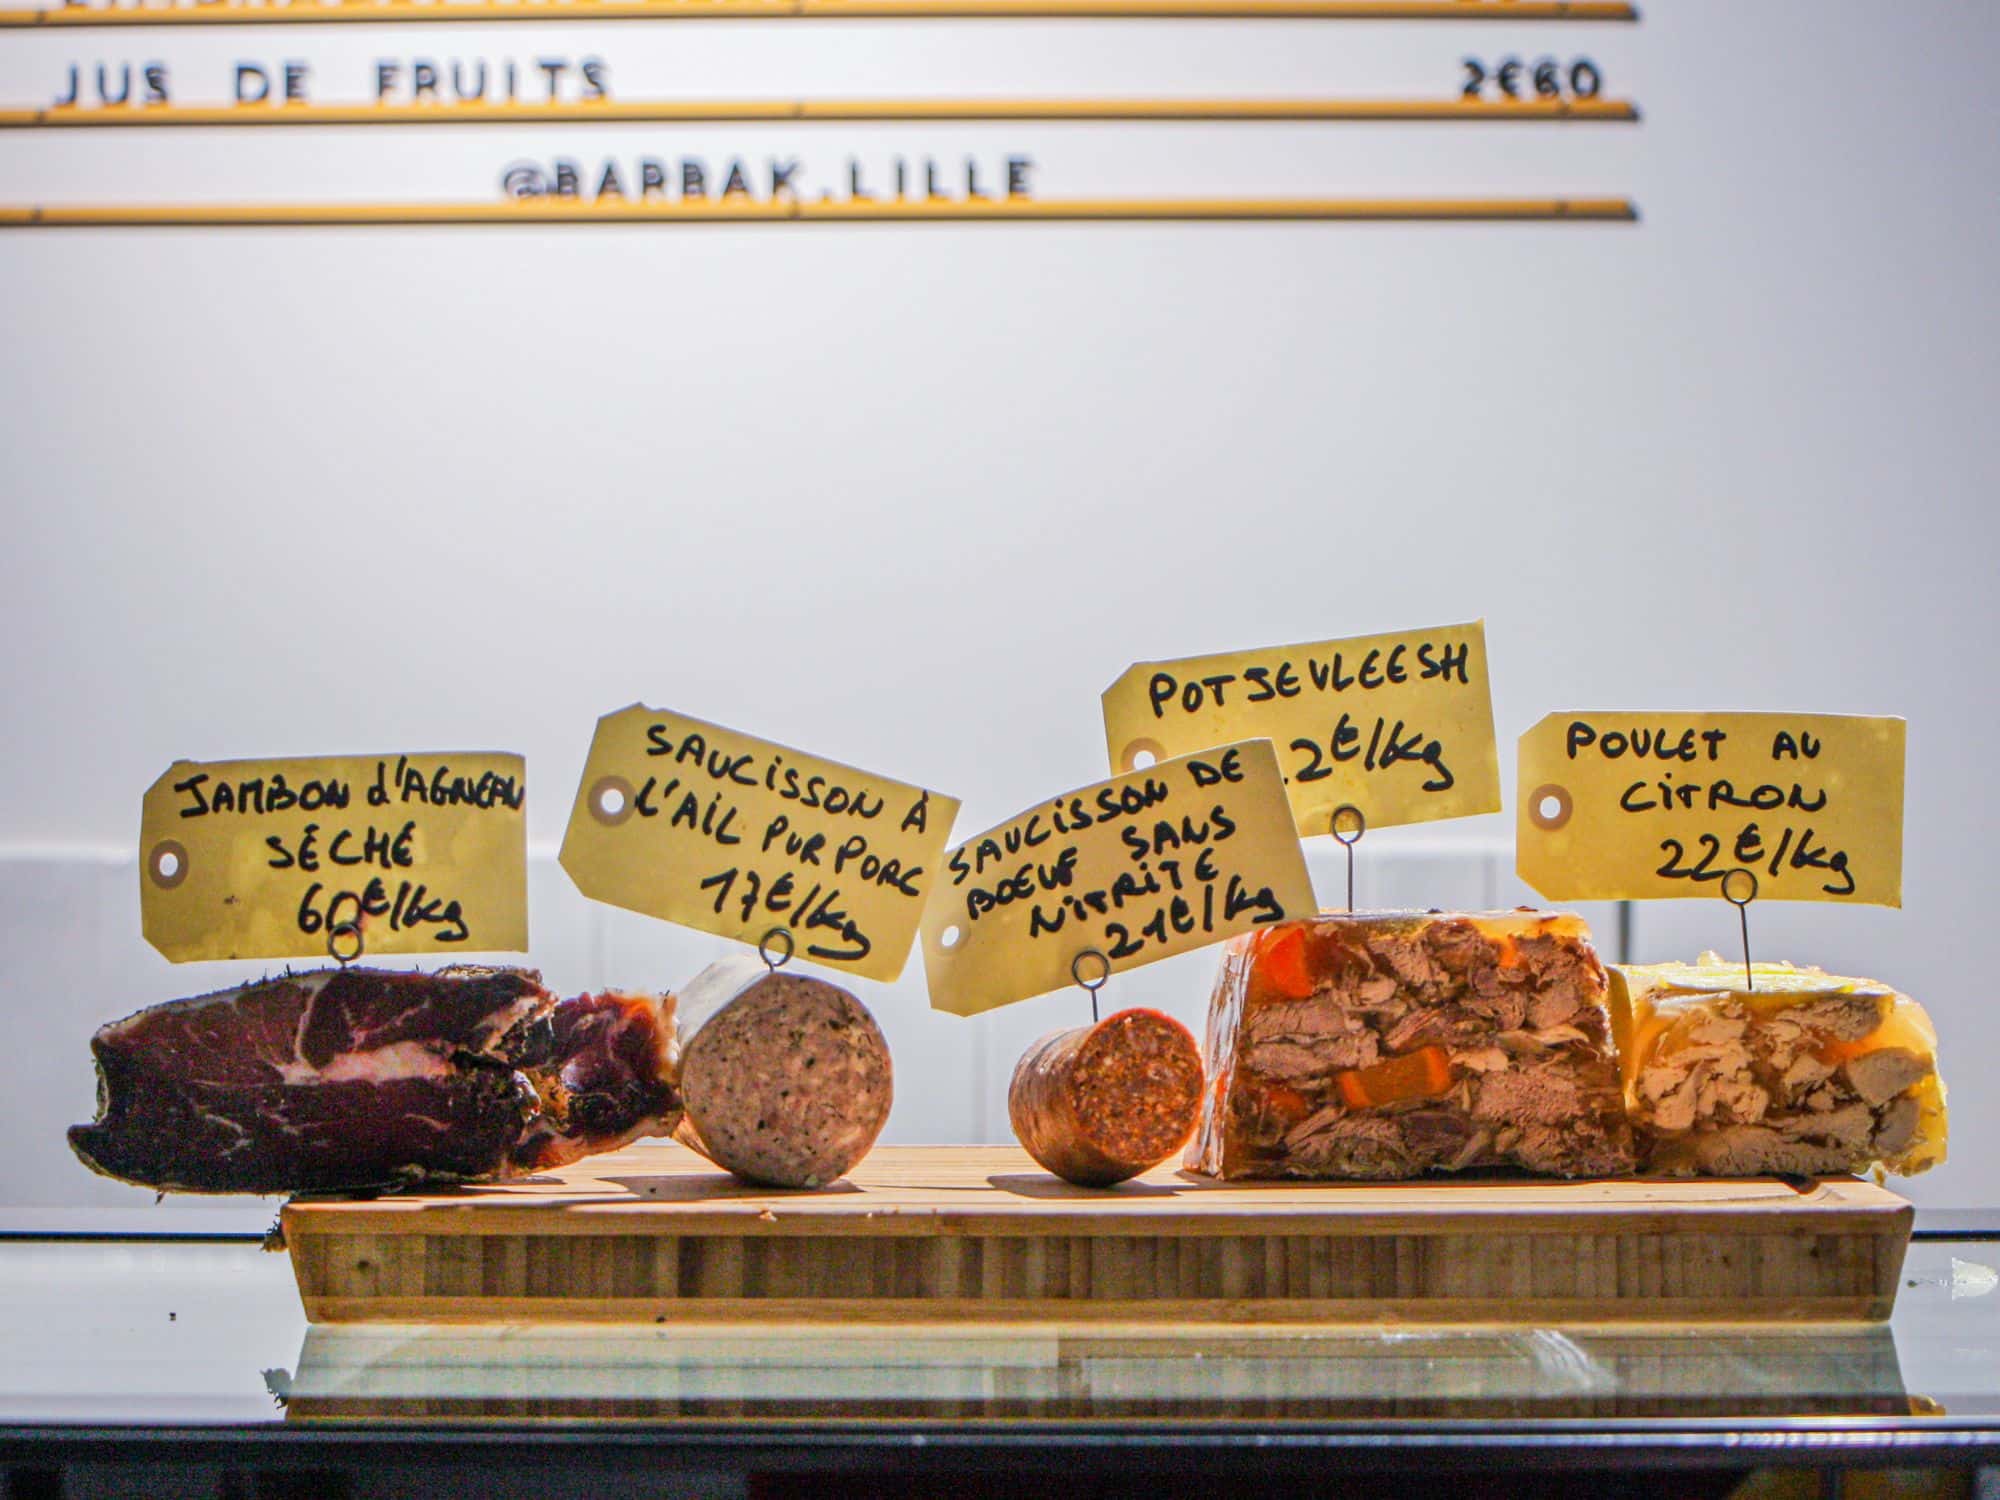 JUS DE FRUITS 2€60
@BARBAK.LILLE
JAMBON d'AGNEAU
SÉCHÉ
60€/kg
SAUCISSON À
L'AIL PUR PORC
17€/kg
SAUCISSON DE
BOEUF SANS
NITRITE
21€/kg
POTJEVLEESH
2€/kg
POULET AU
CITRON
22€/kg